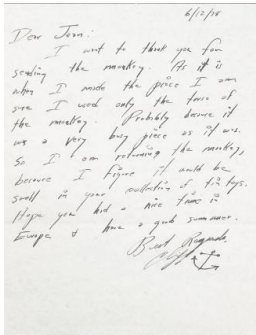 6/12/78
Dear Joan:
I want to thank you for
sending the monkey. As it is
when I made the piece I am
sure I used only the torso of
the monkey. Probably because it
was a very busy piece as it was.
So I am returning the monkey,
because I figure it would be
swell in your collection of tin toys.
Hope you had a nice time in
Europe & have a good summer.
Best Regards